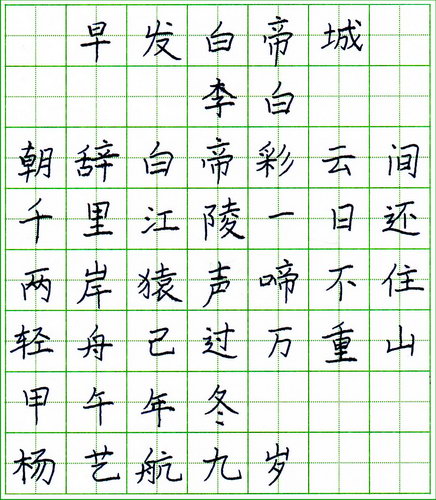 早发白帝城
李白
朝辞白帝彩云间
千里江陵一日还
两岸猿声啼不住
轻舟已过万重山
甲午年冬
杨艺航九岁